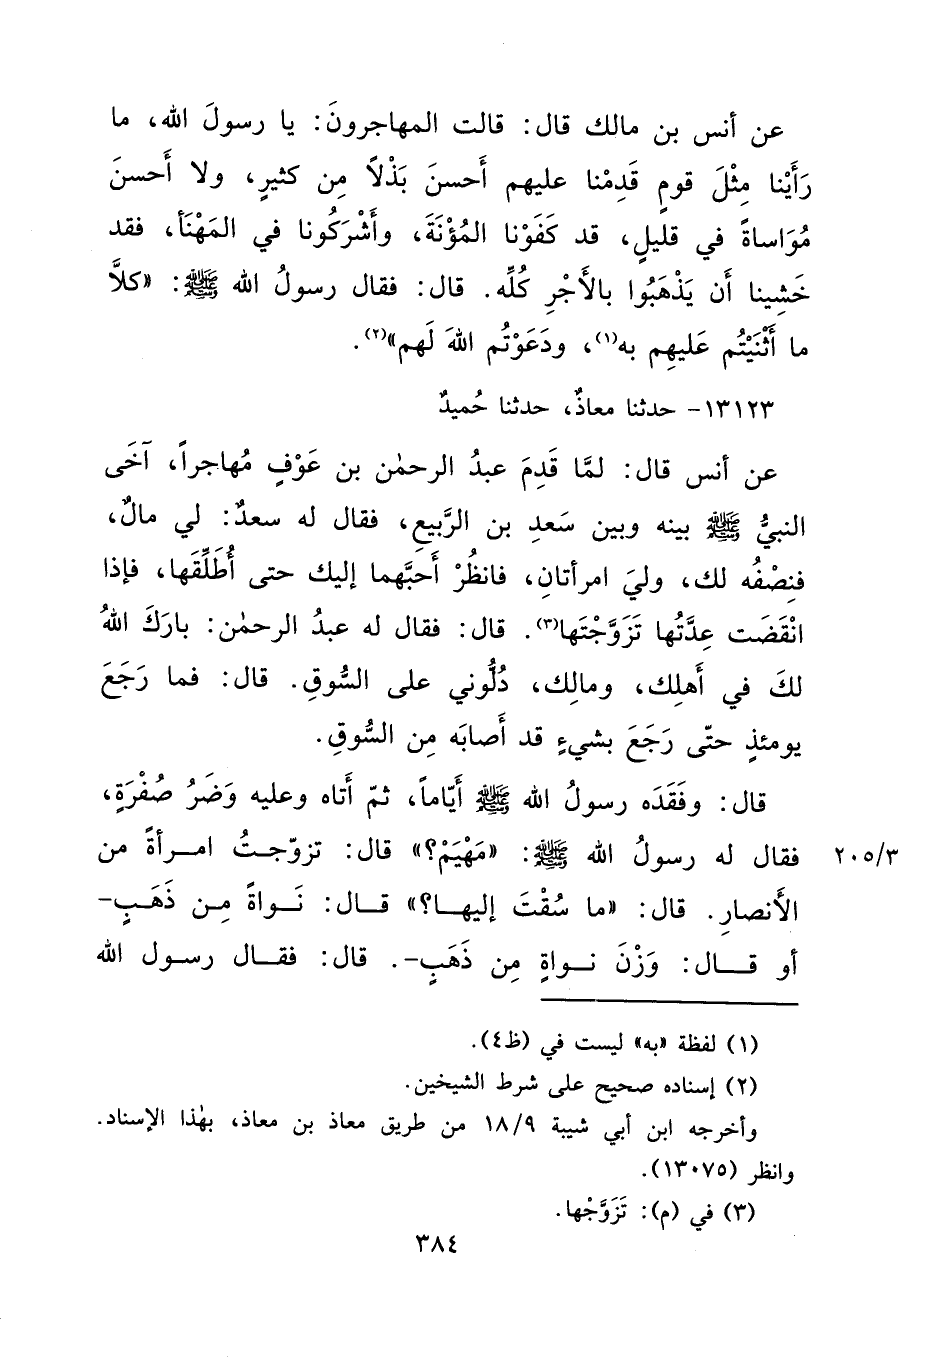 عن أنس بن مالك قال: قالت المهاجرونَ: يا رسولَ الله، ما
رَأَيْنا مِثْلَ قومٍ قَدِمْنا عليهم أَحسنَ بَذْلاً مِن كثيرٍ، ولا أَحسنَ
مُوَاساةً في قليلٍ، قد كَفَوْنا المُؤْنَةَ، وأَشْرَكُونا في المَهْنَأ، فقد
خَشِينا أَن يَذْهَبُوا بالأَجْرِ كُلِّه. قال: فقال رسولُ الله ﷺ: «كلاَّ
ما أَثْنَيْتُم عَليهِم به(١)، ودَعَوْتُم اللهَ لَهم»(٢).
١٣١٢٣- حدثنا معاذٌ، حدثنا حُميدٌ
عن أنس قال: لمَّا قَدِمَ عبدُ الرحمٰن بن عَوْفٍ مُهاجراً، آخَى
النبيُّ ﷺ بينه وبين سَعدِ بن الرَّبيعِ، فقال له سعدٌ: لي مالٌ،
فنِصْفُه لك، وليَ امرأتانِ، فانظُرْ أَحبَّهما إليك حتى أُطَلِّقَها، فإذا
انْقَضَت عِدَّتُها تَزَوَّجْتَها(٣). قال: فقال له عبدُ الرحمٰن: بارَكَ اللهُ
لكَ في أَهلِك، ومالِك، دُلُّوني على السُّوقِ. قال: فما رَجَعَ
يومئذٍ حتّى رَجَعَ بشيءٍ قد أَصابَه مِن السُّوقِ.
قال: وفَقَدَه رسولُ الله ﷺ أَيّاماً، ثمّ أَتاه وعليه وَضَرُ صُفْرَةٍ،
فقال له رسولُ الله ﷺ: «مَهْيَمْ؟» قال: تزوّجتُ امرأةً من ٢٠٥/٣
الأَنصارِ. قال: «ما سُقْتَ إليها؟» قال: نَواةً مِن ذَهَبٍ-
أو قال: وَزْنَ نواةٍ مِن ذَهَبٍ-. قال: فقال رسول الله
(١) لفظة «به» ليست في (ظ٤).
(٢) إسناده صحيح على شرط الشيخين.
وأخرجه ابن أبي شيبة ١٨/٩ من طريق معاذ بن معاذ، بهٰذا الإسناد.
وانظر (١٣٠٧٥).
(٣) في (م): تَزَوَّجْها.
٣٨٤